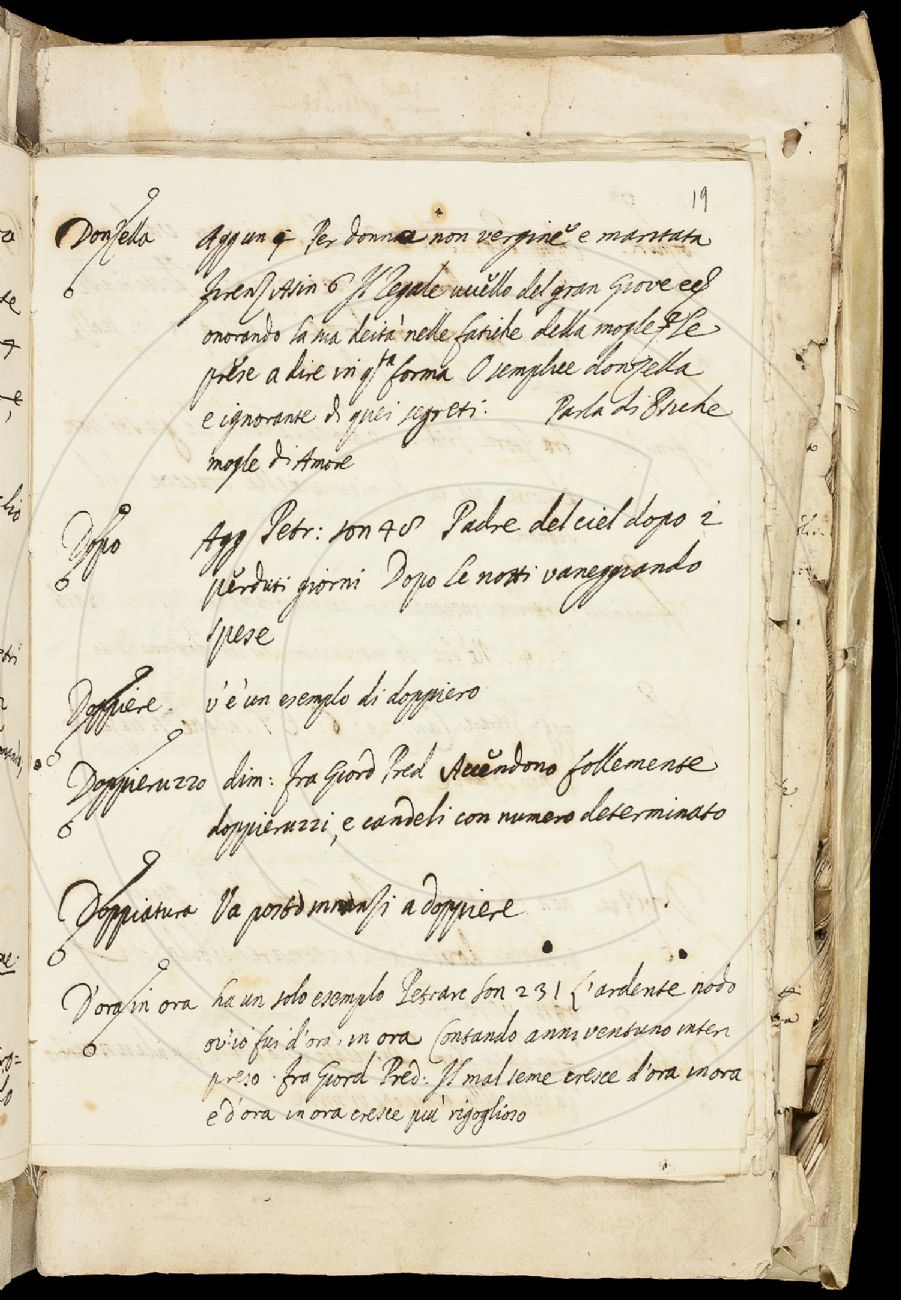 19
Donzella Aggiung Per donna non vergine e maritata
Firenz Asin 6 Il regale uccello del gran Giove
onorando la sua deità nelle fatiche della mogle Le
prese a dire in qsta forma O semplice donzella
e ignorante di quei segreti. Parla di Psiche
mogle di Amore
Dopo Agg Petr: son 48 Padre del ciel dopo i
perduti giorni Dopo le notti vaneggiando
spese
Doppiere v'è un esemplo di doppiero
Doppieruzzo dim: fra Giord Pred Accendono follemente
doppieruzzi, e candeli con numero determinato
Doppiatura Va posto innanzi a doppiere
D'ora in ora ha un solo esemplo Petrarc son 231 L'ardente nodo
ov'io fui d'ora in ora Contando anni ventuno interi
preso. fra Giord Pred: Il mal seme cresce d'ora in ora
e d'ora in ora cresce più rigoglioso